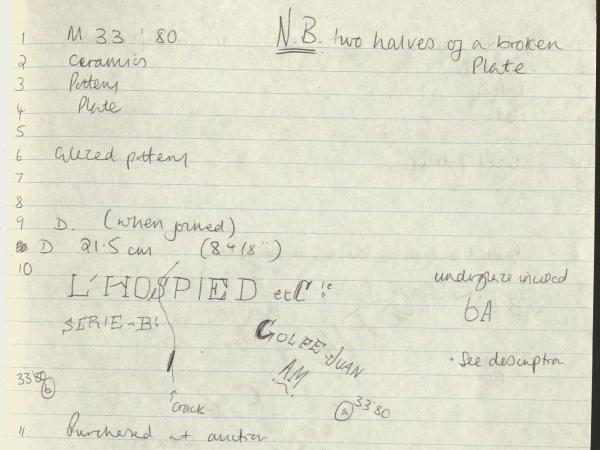 N.B. two halves of a broken
Plate
1 M 33'80
2 Ceramics
3 Pottery
4 Plate
5
6 Glazed pottery
7
8
9 D. (when joined)
D 21.5 cm
10
L'HOSPIED etC ie
SERIE-B
GOLFE-JUAN
AM
underglaze incised
6A
· See description
33'80 b
↑ crack
a 33'80
11. Purchased at auction.